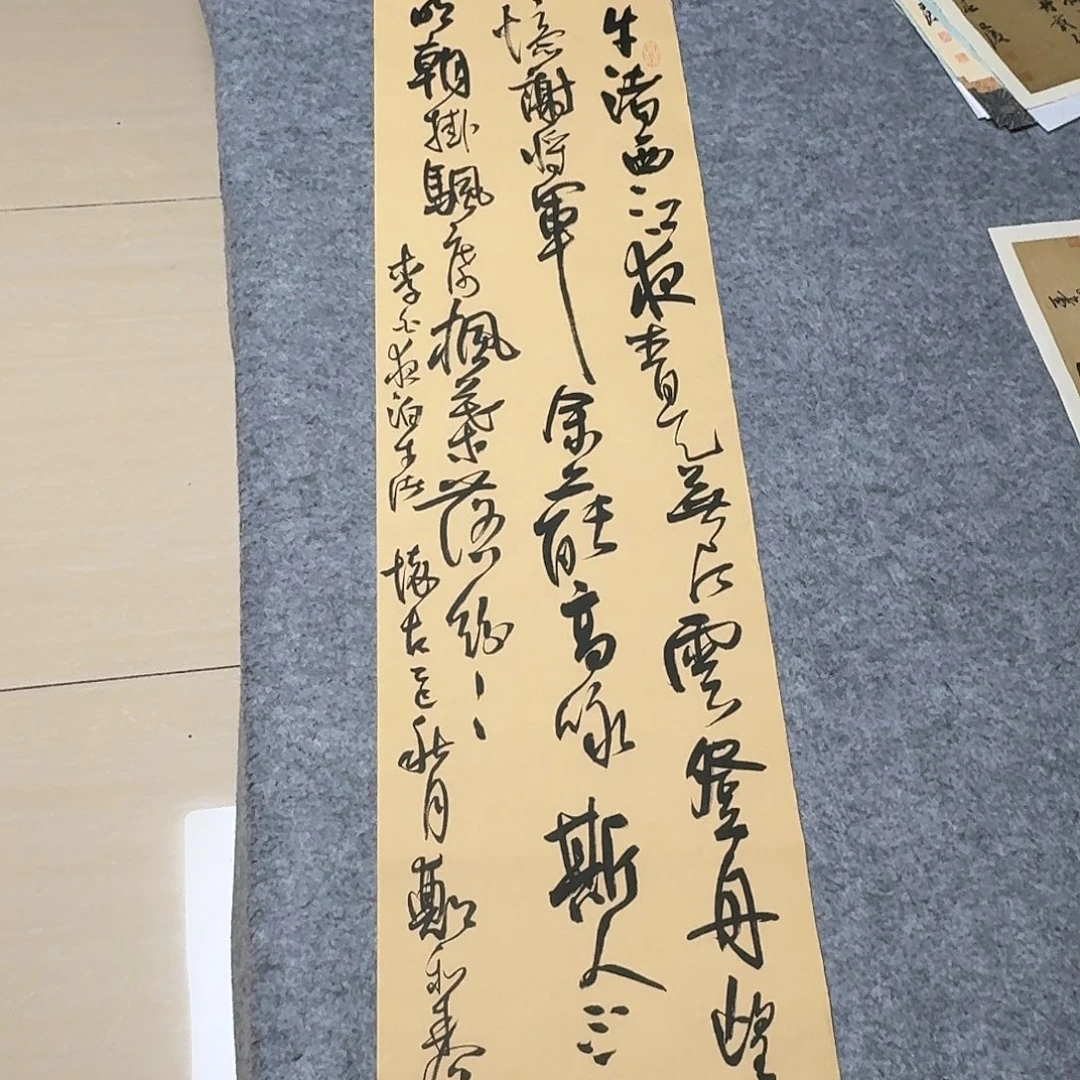 牛渚西江夜青天無片雲登舟望
憶謝將軍余亦能高詠斯人
明朝掛颿席楓葉落紛〻
李白夜泊牛渚懷古 秋月鄭和春